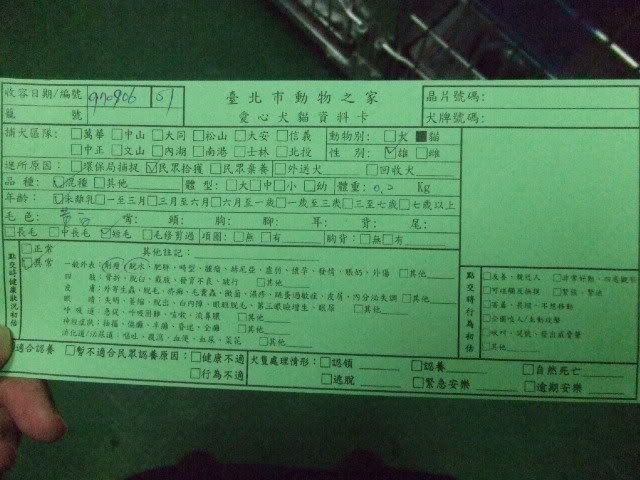 收容日期/編號 970906 51 臺北市動物之家 晶片號碼：
籠 號 愛心犬貓資料卡 犬牌號碼：
捕犬區隊： □萬華 □中山 □大同 □松山 □大安 □信義 動物別： □犬 ■貓
□中正 □文山 □內湖 □南港 □士林 □北投 性 別： ☑雄 □雌
進所原因： □環保局捕捉 ☑民眾拾獲 □民眾棄養 □外送犬 □回收犬
品 種： ☑混種 □其他 體 型： □大 □中 □小 □幼 體重： 0.2 Kg
年齡： ☑未離乳 □一至三月 □三月至六月 □六月至一歲 □一歲至三歲 □三至七歲 □七歲以上
毛 色： 黃 嘴： 頭： 胸： 腳： 耳： 背： 尾：
□長毛 □中長毛 ☑短毛 □毛修剪過 項圈： □無 □有 胸背： □無 □有
點交時健康狀況初估 □正常 其他註記：
☑異常 一般外表： 削瘦、脫水、肥胖、畸型、腫瘤、赫尼亞、虛弱、懷孕、發情、脹奶、外傷 □其他
四 肢：骨折、脫臼、截肢、發育不良、跛行 □其他
皮 膚：外寄生蟲、脫毛、疥癬、毛囊蟲、黴菌、濕疹、跳蚤過敏症、皮屑、內分泌失調 □其他
眼 睛：失明、萎縮、脫出、白內障、眼瞼脫毛、第三眼瞼增生、眼屎 □其他
呼吸道：急促、呼吸困難、咳嗽、流鼻膿 □其他
神經症狀：抽搐、偏癱、半癱、昏迷、全癱 □其他
消化道/泌尿道：嘔吐、腹瀉、血便、血尿、菜花 □其他
點交時行為初估 □友善、親近人
□可碰觸無攻擊 □緊張、緊迫
□害羞、長縮、不想移動
□企圖咬人/主動攻擊
□吠叫、低吼、發出威脅聲
□其他
適合認養 □暫不適合民眾認養原因： □健康不適 犬隻處理情形： □認領 □認養 □自然死亡
□行為不適 □逃脫 □緊急安樂 □逾期安樂